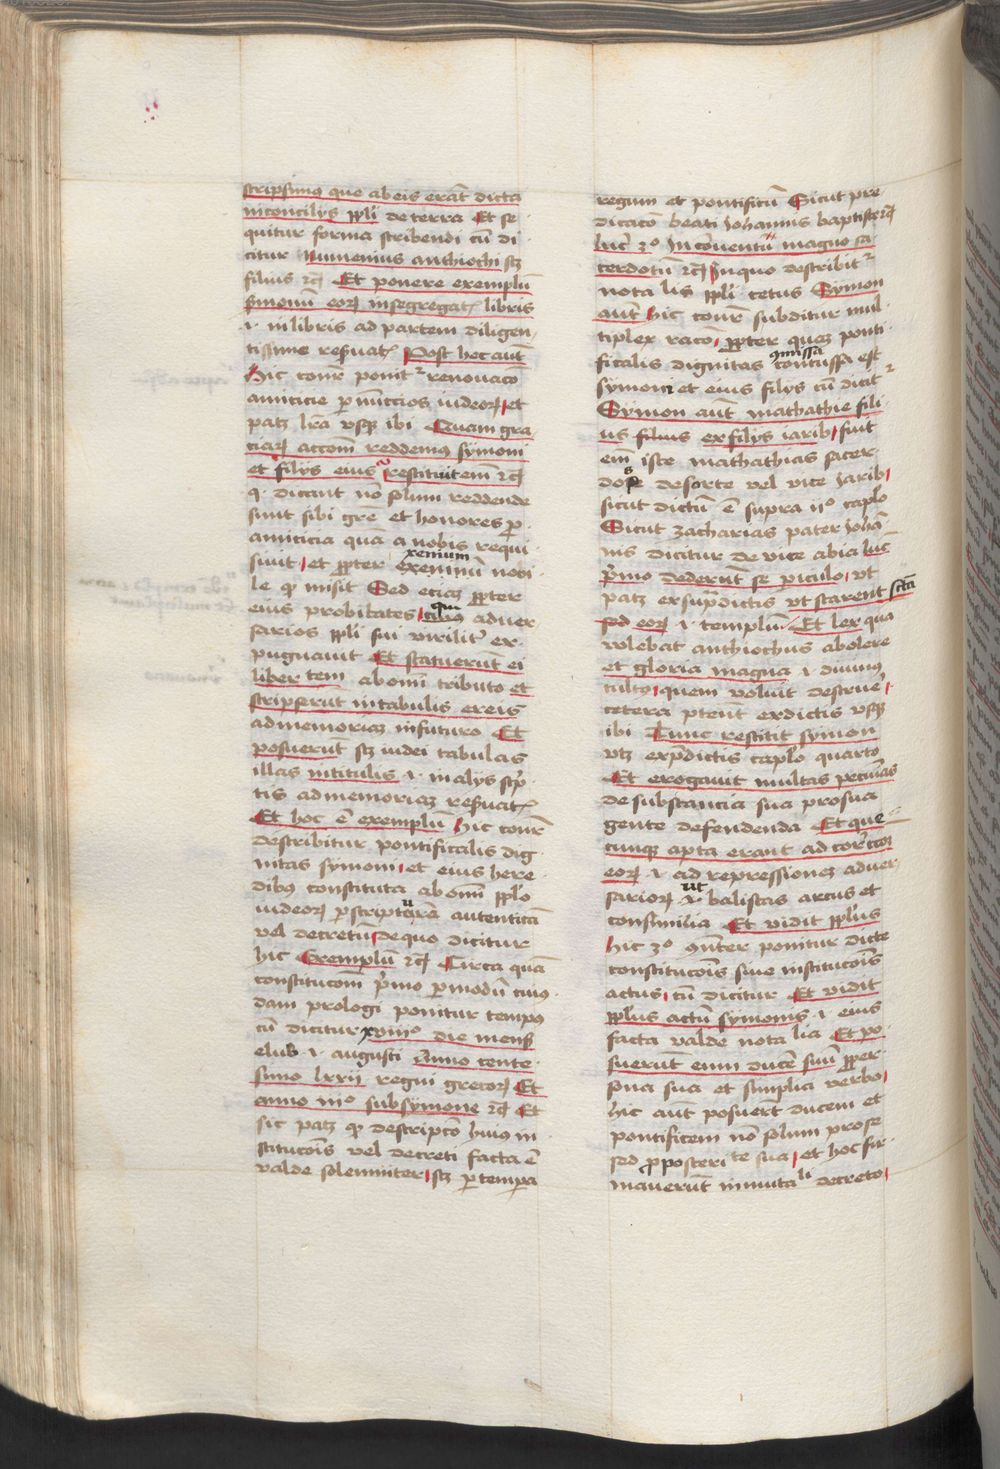 scripsimus que ab eis erāt dicta
in concilijs ppli de terra Et se
quitur forma scribendi cū di
citur Numenius anthiochi scz
filius ⁊c̄ Et ponere exemplū
s̄monū eorꝫ in segregatꝭ libris
.i. in libris ad partem diligen
tissime res̄uatꝭ Post hec aut̄
Hic cōnr̄ ponitᵗ renouacō
amicicie p nūccios iudeorꝫ et
patꝫ lr̄a vsqꝫ ibi Quam gra
ciarꝫ accom̄ reddemus symoni
et filijs eius restituit em̄ ⁊c̄
q. dicant nō solum reddende
sunt sibi gr̄e et honores p
amicicia qua a nobis requi
siuit et ꝓpter exeniū xenium nobi
le qᵈ misit Sed eciaꝫ ꝓpter
eius probitates qui aduer
sarios ppli sui virilit̄ ex
pugnauit Et statuerūt ei
libertatem ab omni tributo et
scripserūt in tabulis ereis
ad memoriaꝫ in futuro Et
posuerūt scꝫ iudei tabulas
illas in titulis .i. in alijs sc̄p
tis ad memoriaꝫ res̄uatꝭ
Et hoc ē exemplū Hic cōnr̄
describitur pontificalis dig
nitas symoni et eius here
dibus constituta ab omni pplo
iudeorꝫ p scripturā autenticā
vel decretū de quo dicitur
hic Exemplū ⁊c̄ Circa quā
constitucom̄ p̄mo p modū cuius
dam prologi ponitur tempus
cū dicitur xviijº die mens̄
elul .i. augusti Anno cente
simo lxxij regni grecorꝫ Et
anno iijº sub symone ⁊c̄ Et
sic patꝫ qᵈ descripcō huius in
stitucōis vel decreti facta ē
valde solemniter scꝫ p tempora
regum et pontificū Sicut pre
dicacō beati Johannis baptiste ⁊c̄
luc̄ 3º In conuentu magno sa
cerdotū ⁊c̄ In quo describitᵗ
notalis ppli cetus Symon
aut̄ Hic cōnr̄ subditur mul
tiplex racō ꝓpter quaꝫ ponti
ficalis dignitas conmissa est
symoni et eius filijs cū dicitᵗ
Symon aut̄ mathathie fili
us filius ex filijs iarib fuit
em̄ iste mathathias sacer
dos de sorte vel vice Jarib
sicut dictū ē supra ijº caplo
Sicut zacharias pater Johā
nis dicitur de vice abia luc̄
p̄mo dederūt se periculo vt
patꝫ ex sup̄dictis vt starent sc̄ta
eorꝫ .i. templū Et lex quā
volebat anthiochus abolere
et gloria magna .i. diuinus
cultus quem voluit destruē
cetera patent ex dictis vsqꝫ
ibi Tunc restitit symon
vtꝫ ex p̄dictis caplo quarto
Et erogauit multas pecunias
de substancia sua pro sua
gente defendenda Et que
cunqꝫ apta erant ad corr̄ccoꝫ
eorꝫ .i. ad repressionem aduer
sariorꝫ vt balistas arcus et
consimilia Et vidit pplus
Hic 3º cōnter ponitur dicte
constitucōis siue institucōis
actus cū dicitur Et vidit
pplus actū symonis .i. eius
facta valde notalia Et po
suerūt eum ducē suū ꝓpter
sua et simplici verbo
Hic aut̄ posuer̄t ducem et
pontificem nō solum pro se
sed ꝓ posteritate sua et hoc fir
mauerūt inmutali decreto